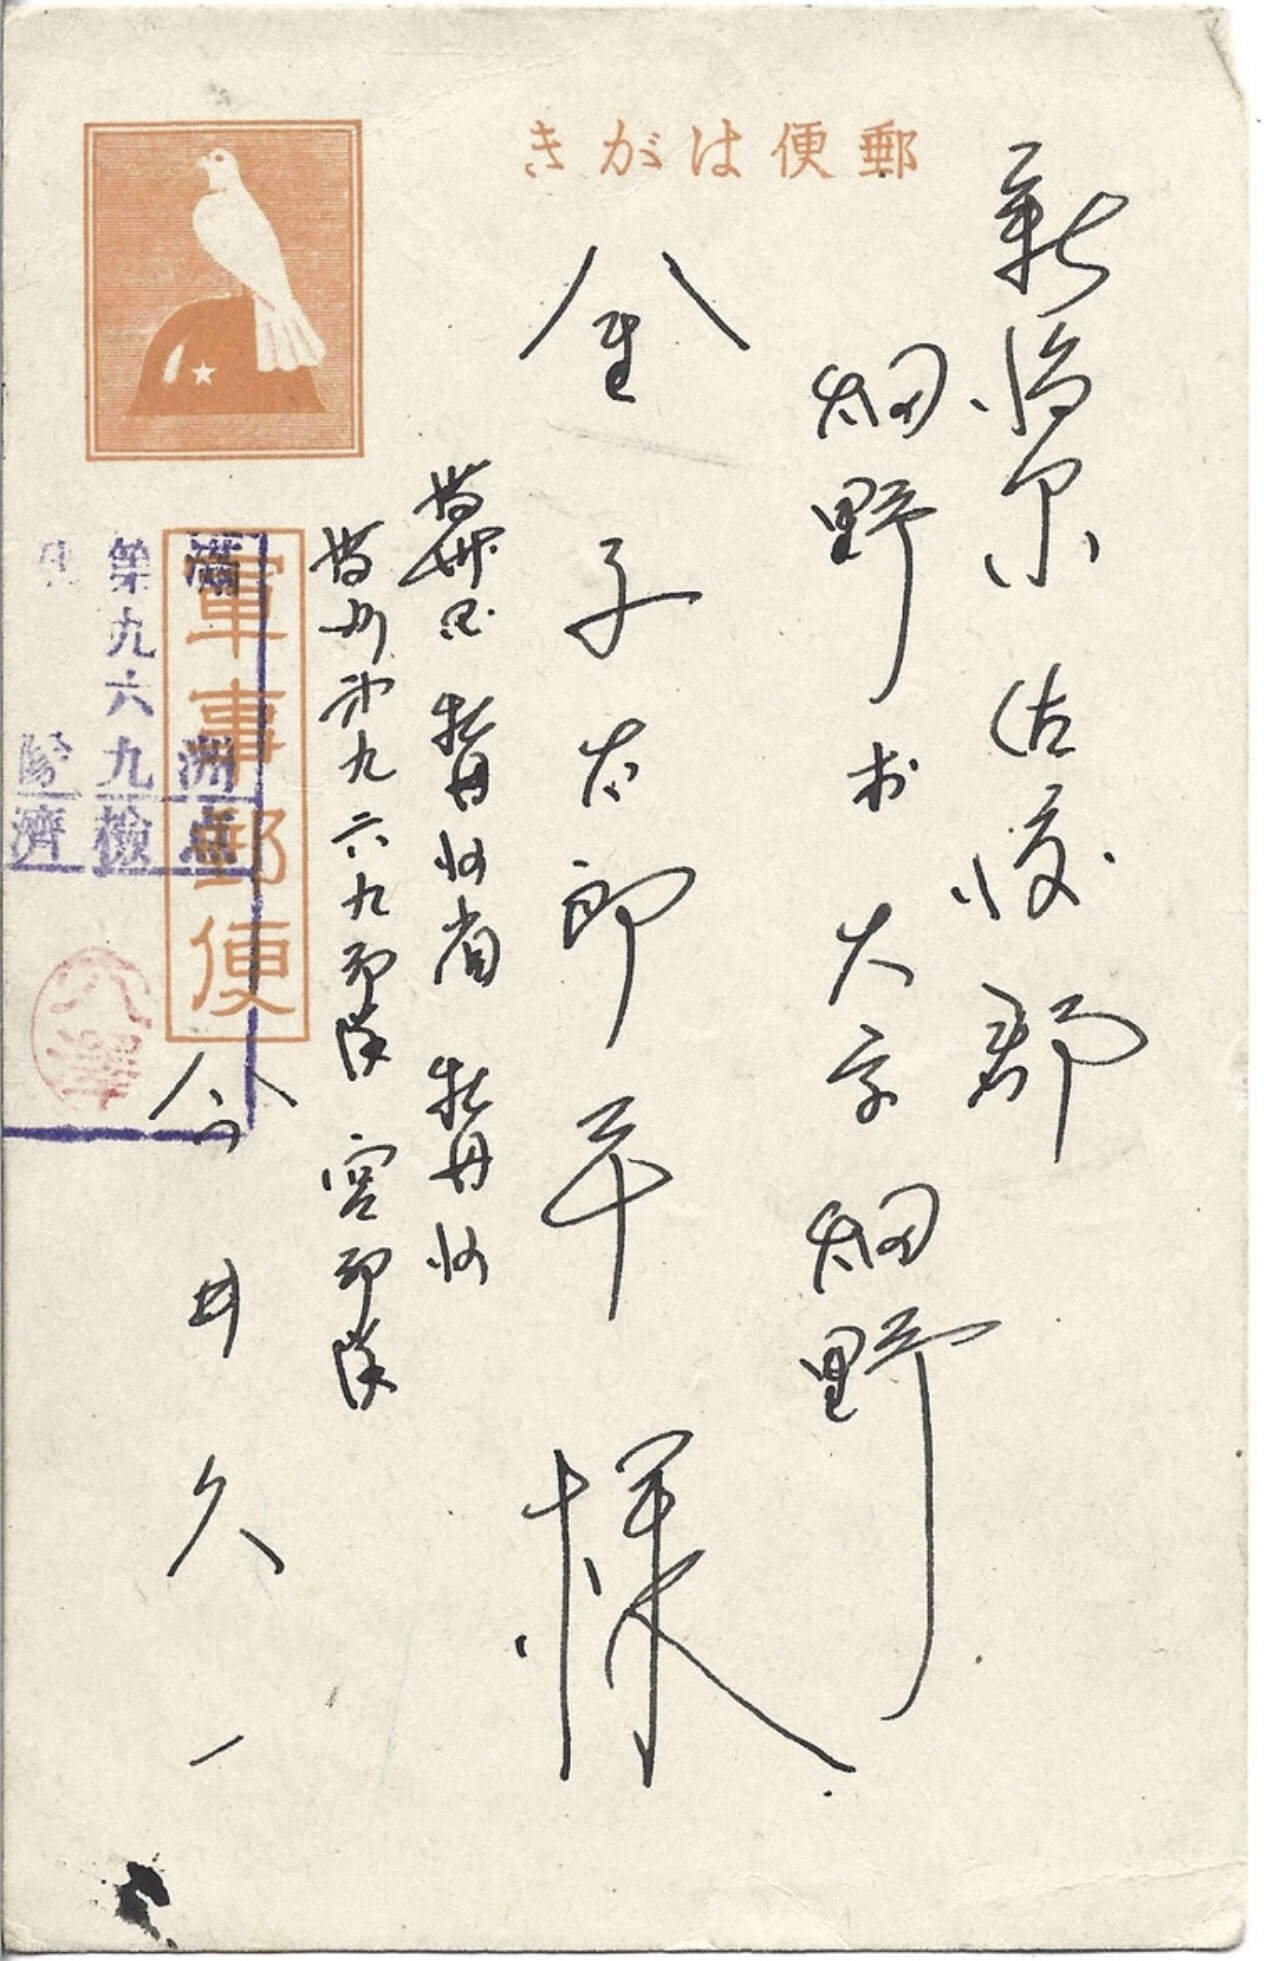 郵便はがき
新潟県 佐渡郡
畑野村 大字 畑野
金子太郎平 様
満洲国 牡丹江省 牡丹江
満州第九六九部隊 宮部隊
今井久一
軍事郵便
満洲
第九六九
部隊
点検済